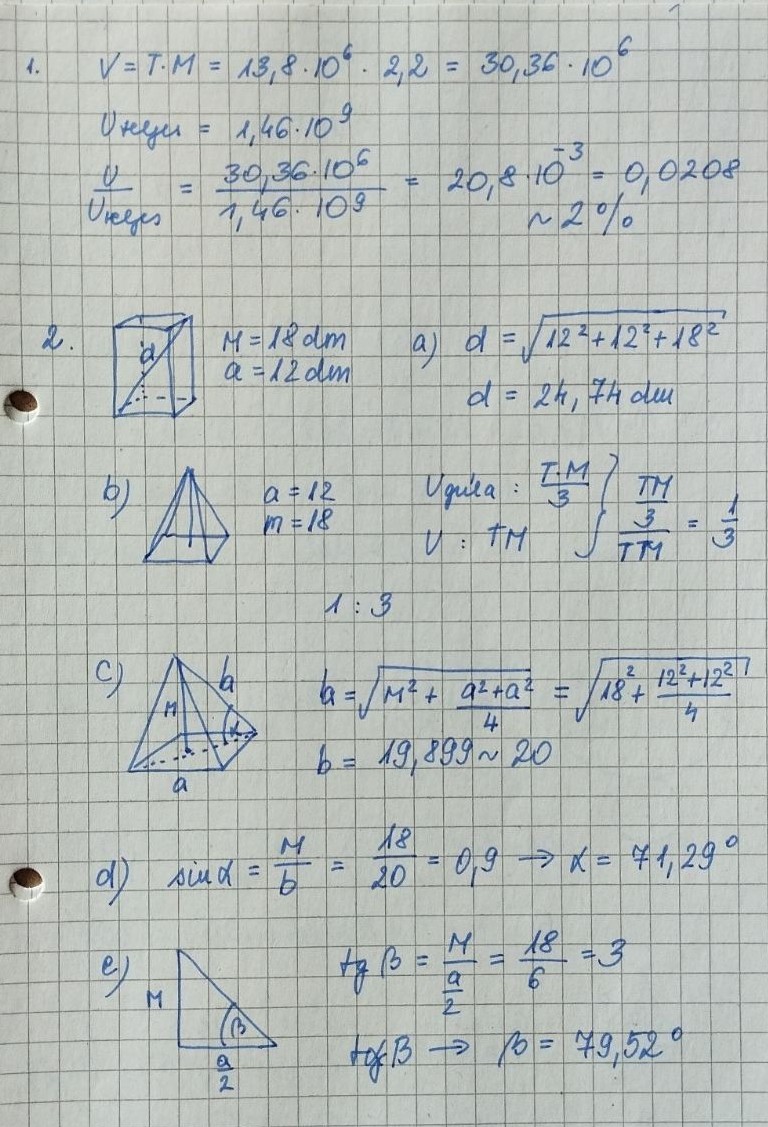 1. V = T·M = 13,8·10⁶ · 2,2 = 30,36·10⁶
= 1,46·10⁹
= 30,36·10⁶ / 1,46·10⁹ = 20,8·10⁻³ = 0,0208
~ 2%
2. d M = 18 dm a) d = √(12² + 12² + 18²)
a = 12 dm
d = 24,74 dm
b) a = 12 : T·M/3 } (TM/3)/TM = 1/3
m = 18 V : TM
1 : 3
c) M b α a b = √(M² + (a² + a²)/4) = √(18² + (12² + 12²)/4)
b = 19,899 ~ 20
d) sin α = M/b = 18/20 = 0,9 → α = 71,29°
e) M β a/2 tg β = M/(a/2) = 18/6 = 3
tg β → β = 79,52°